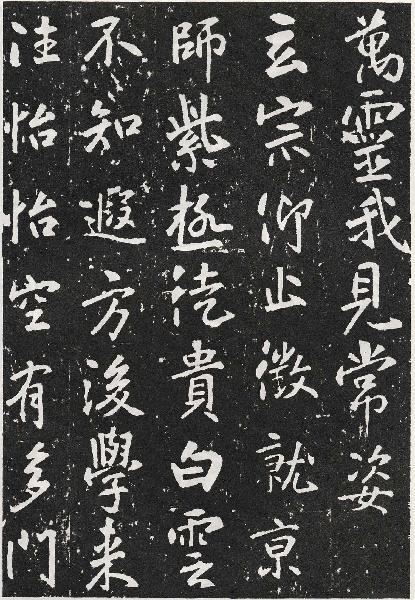 萬靈我見常姿
玄宗仰止徵就京
師紫極徒貴白雲
不知遐方後學来
往怡怡空有多門